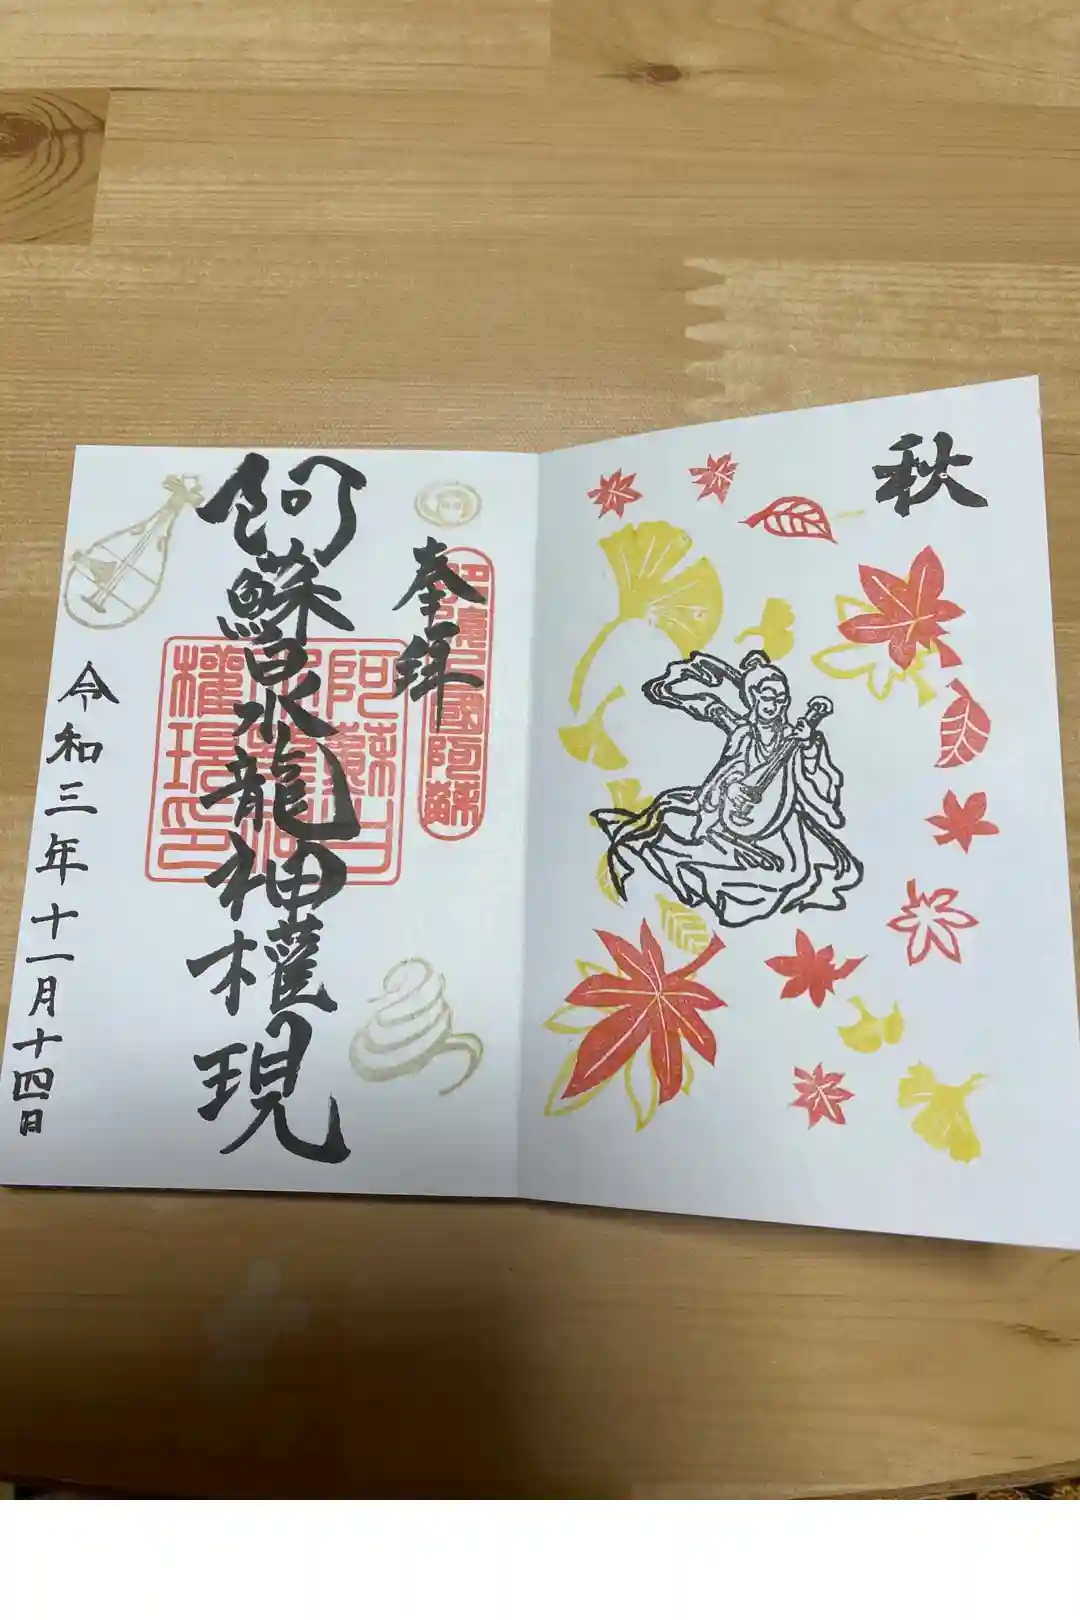 秋
奉拝
國阿蘇
阿蘇白水龍神權現
阿蘇
權現印
令和三年十一月十四日